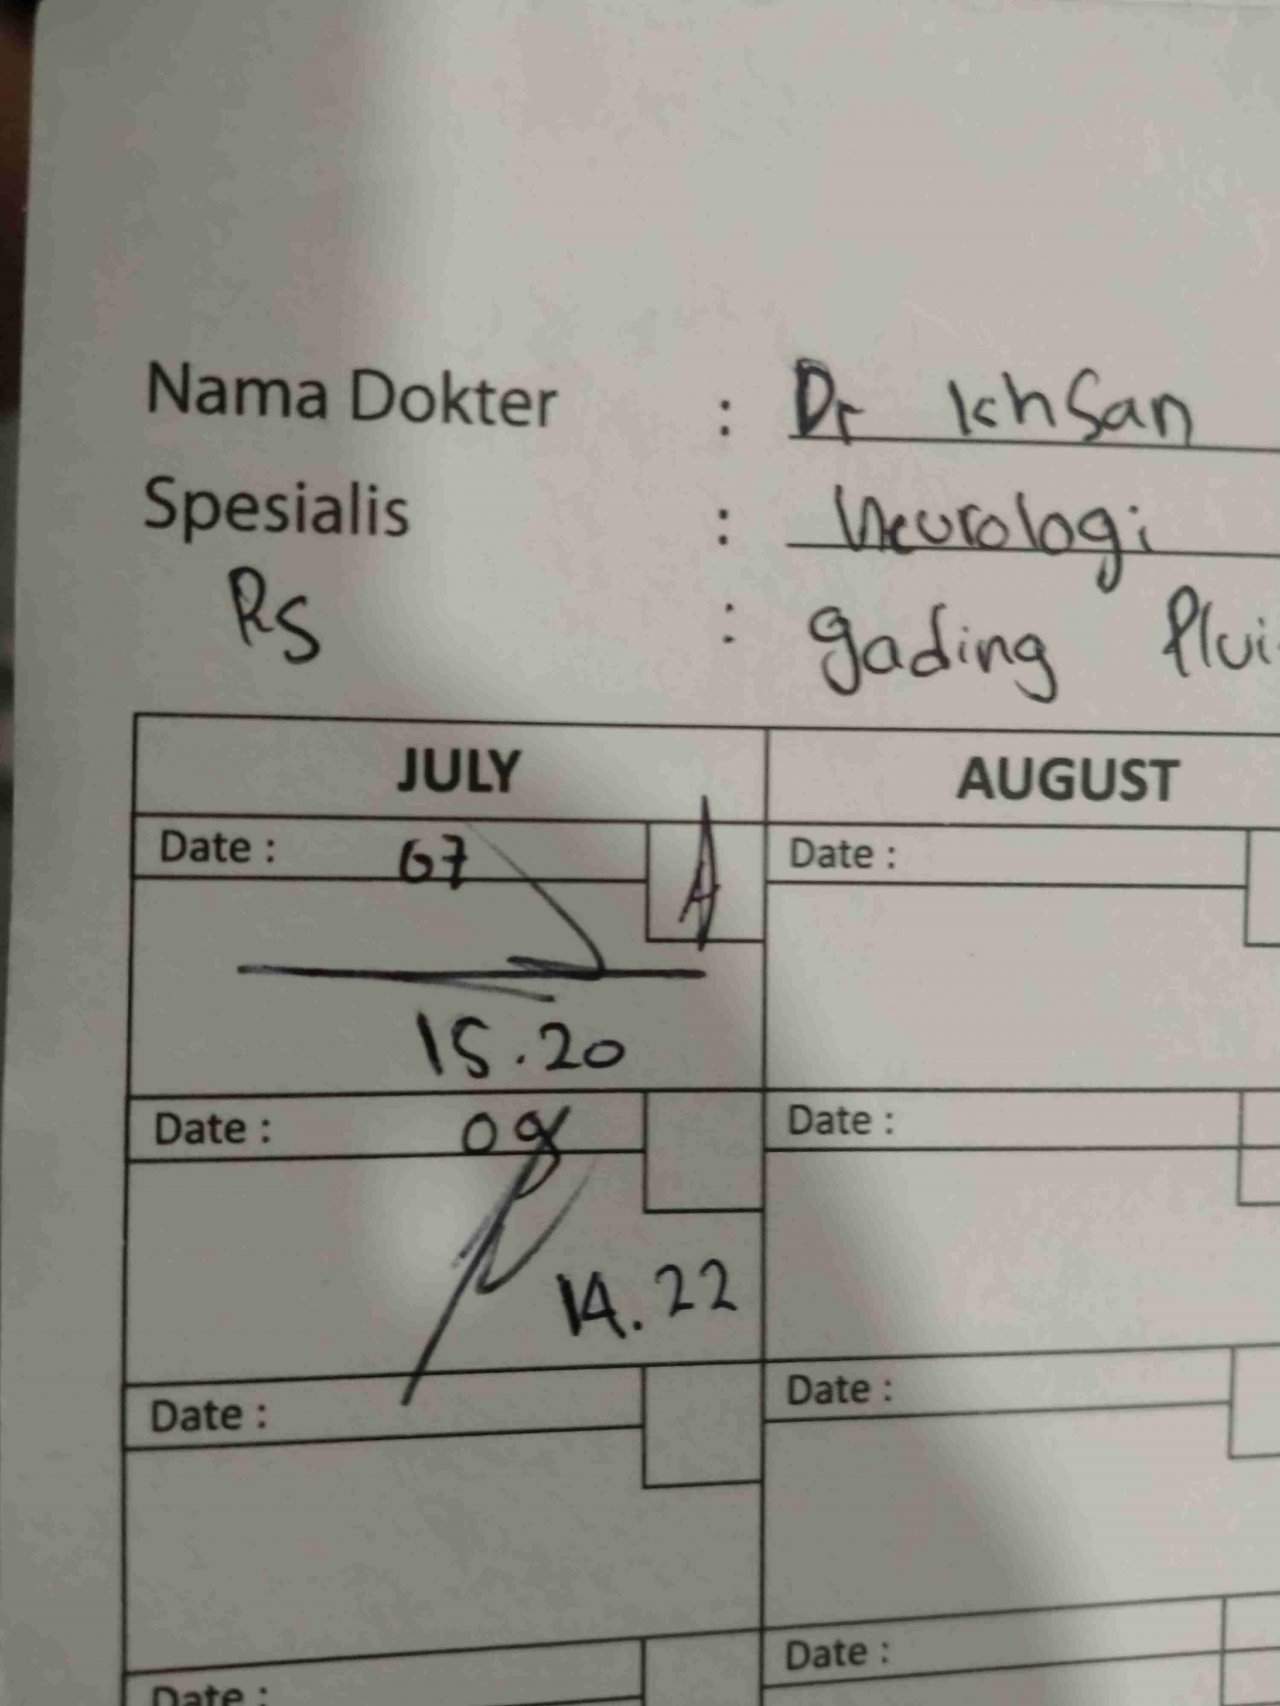 Nama Dokter : Dr Ichsan
Spesialis : Neurologi
RS : gading Plui
JULY AUGUST
Date : 07 Date :
15.20
Date : 08 Date :
14.22
Date : Date :
Date : Date :